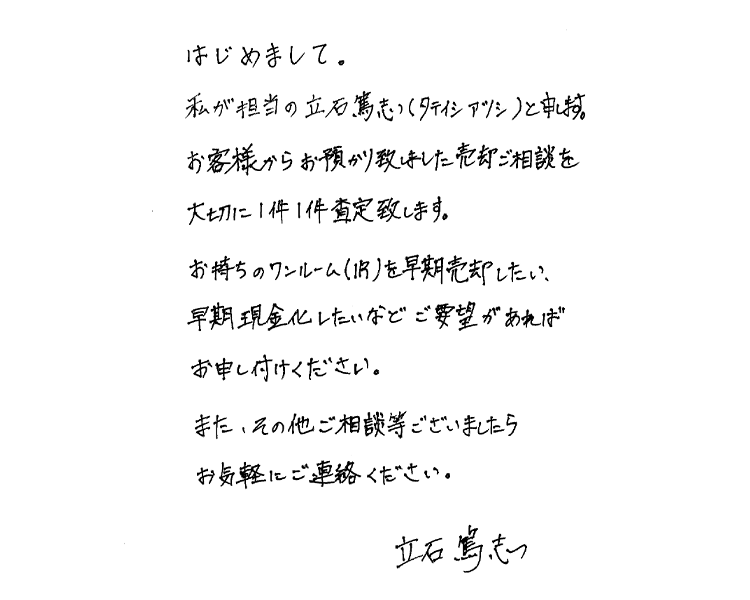 はじめまして。
私が担当の立石篤志(タテイシ アツシ)と申します。
お客様からお預かり致しました売却ご相談を
大切に1件1件査定致します。
お持ちのワンルーム(1R)を早期売却したい、
早期現金化したいなどご要望があれば
お申し付けください。
また、その他ご相談等ございましたら
お気軽にご連絡ください。
立石篤志